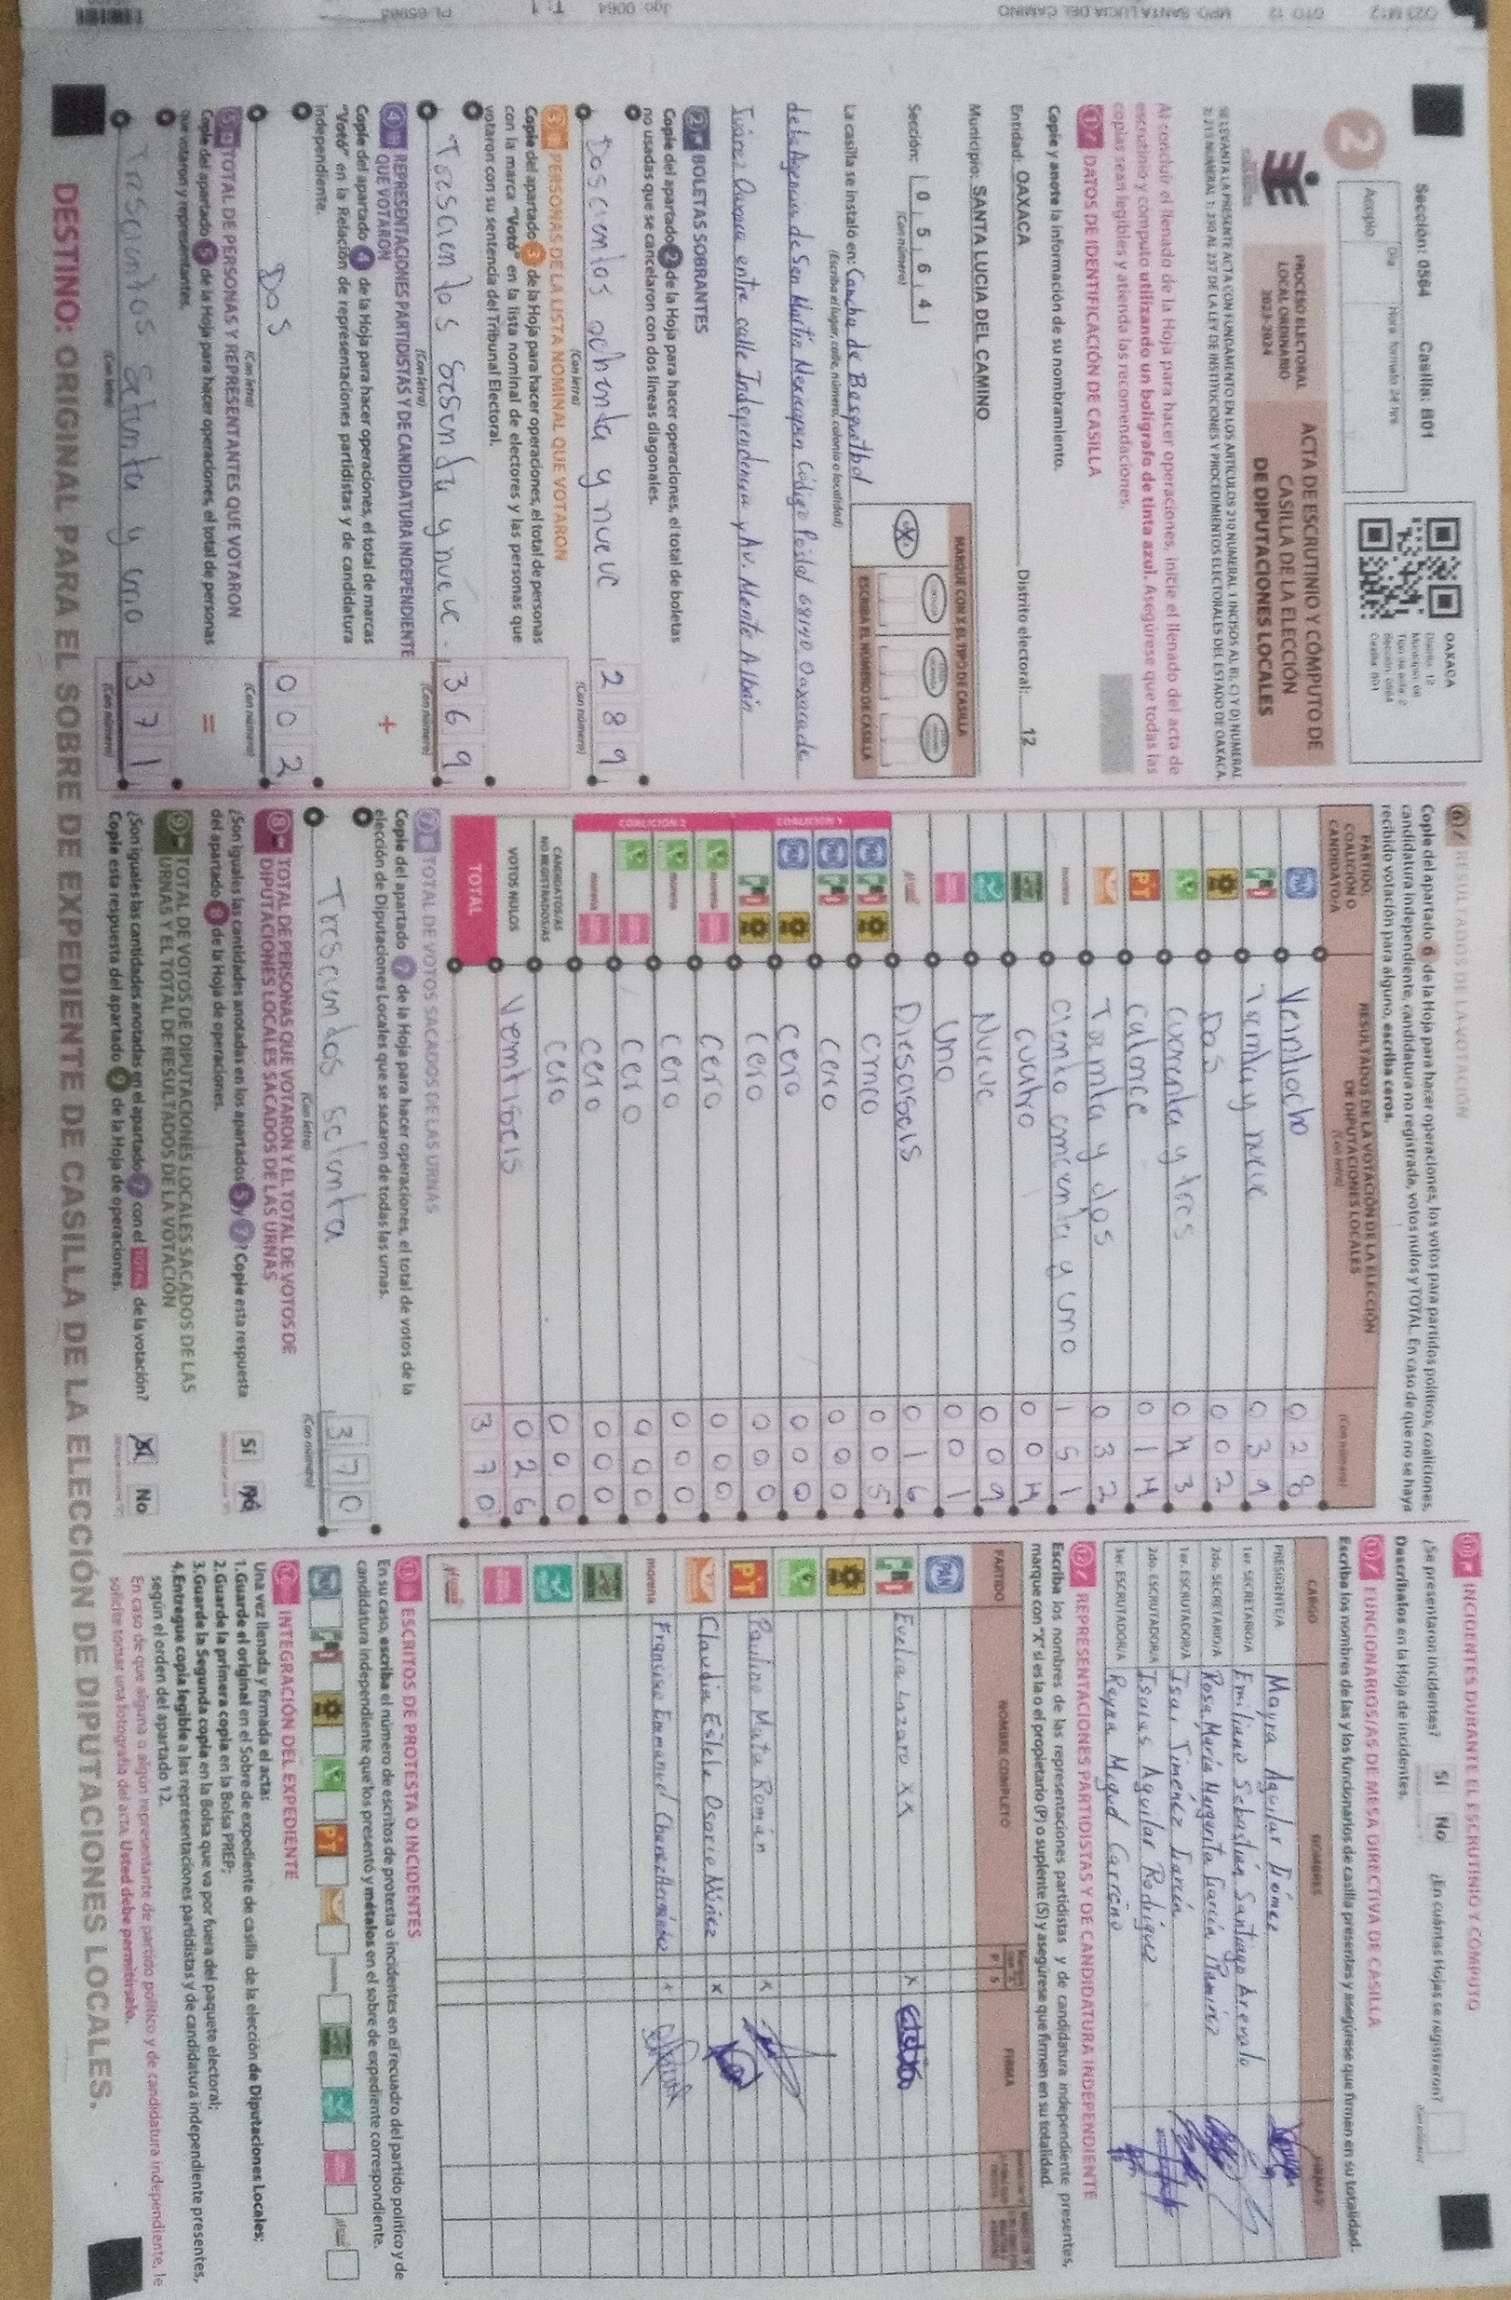 Sección: 0564 Casilla: B01
Acopio
Día
Hora formato 24 hrs
OAXACA
Distrito: 12
Sección: 0564
Casilla: B01
2
PROCESO ELECTORAL
LOCAL ORDINARIO
2023-2024
ACTA DE ESCRUTINIO Y CÓMPUTO DE
CASILLA DE LA ELECCIÓN
DE DIPUTACIONES LOCALES
Al concluir el llenado de la Hoja para hacer operaciones, inicie el llenado del acta de
escrutinio y cómputo utilizando un bolígrafo de tinta azul. Asegúrese que todas las
copias sean legibles y atienda las recomendaciones.
1 DATOS DE IDENTIFICACIÓN DE CASILLA
Copie y anote la información de su nombramiento.
Entidad: OAXACA Distrito electoral: 12
Municipio: SANTA LUCIA DEL CAMINO
Sección: 0564
(Con número)
MARQUE CON X EL TIPO DE CASILLA
ESCRIBA EL NÚMERO DE CASILLA
La casilla se instaló en: Cancha de Basquetbol
(Escriba el lugar, calle, número, colonia o localidad)
de la Agencia de San Martín Mexicapan Código Postal 68140 Oaxaca de
Juárez Oaxaca entre calle Independencia y Av. Monte Albán
2 BOLETAS SOBRANTES
Copie del apartado 2 de la Hoja para hacer operaciones, el total de boletas
no usadas que se cancelaron con dos líneas diagonales.
Doscientos ochenta y nueve 289
(Con letra) (Con número)
3 PERSONAS DE LA LISTA NOMINAL QUE VOTARON
Copie del apartado 3 de la Hoja para hacer operaciones, el total de personas
con la marca "Votó" en la lista nominal de electores y las personas que
votaron con su sentencia del Tribunal Electoral.
Trescientos sesenta y nueve 369
(Con letra) (Con número)
4 REPRESENTACIONES PARTIDISTAS Y DE CANDIDATURA INDEPENDIENTE
QUE VOTARON +
Copie del apartado 4 de la Hoja para hacer operaciones, el total de marcas
"Votó" en la Relación de representaciones partidistas y de candidatura
independiente.
Dos 002
(Con letra) (Con número)
5 TOTAL DE PERSONAS Y REPRESENTANTES QUE VOTARON
Copie del apartado 5 de la Hoja para hacer operaciones, el total de personas =
que votaron y representantes.
Trescientos setenta y uno 371
(Con letra) (Con número)
6 RESULTADOS DE LA VOTACIÓN
Copie del apartado 6 de la Hoja para hacer operaciones, los votos para partidos políticos, coaliciones,
candidatura independiente, candidatura no registrada, votos nulos y TOTAL. En caso de que no se haya
recibido votación para alguno, escriba ceros.
PARTIDO,
COALICIÓN O
CANDIDATO/A
RESULTADOS DE LA VOTACIÓN DE LA ELECCIÓN
DE DIPUTACIONES LOCALES
(Con letra)
(Con número)
PAN Veintiocho 028
PRI Treinta y nueve 039
Dos 002
Cuarenta y tres 043
PT Catorce 014
Treinta y dos 032
morena Ciento cincuenta y uno 151
Cuatro 004
Nueve 009
Uno 001
Dieciseis 016
COALICIÓN 1
Cinco 005
Cero 000
Cero 000
Cero 000
COALICIÓN 2
Cero 000
Cero 000
Cero 000
Cero 000
CANDIDATOS/AS
NO REGISTRADOS/AS Cero 000
VOTOS NULOS Veintiseis 026
TOTAL 370
7 TOTAL DE VOTOS SACADOS DE LAS URNAS
Copie del apartado 7 de la Hoja para hacer operaciones, el total de votos de la
elección de Diputaciones Locales que se sacaron de todas las urnas.
Trescientos setenta 370
(Con letra) (Con número)
8 TOTAL DE PERSONAS QUE VOTARON Y EL TOTAL DE VOTOS DE
DIPUTACIONES LOCALES SACADOS DE LAS URNAS
¿Son iguales las cantidades anotadas en los apartados 5 y 7? Copie esta respuesta Sí No
del apartado 8 de la Hoja de operaciones.
9 TOTAL DE VOTOS DE DIPUTACIONES LOCALES SACADOS DE LAS
URNAS Y EL TOTAL DE RESULTADOS DE LA VOTACIÓN
¿Son iguales las cantidades anotadas en el apartado 7 con el TOTAL de la votación? Sí No
Copie esta respuesta del apartado 9 de la Hoja de operaciones.
10 INCIDENTES DURANTE EL ESCRUTINIO Y CÓMPUTO
¿Se presentaron incidentes? Sí No ¿En cuántas Hojas se registraron?
Descríbalos en la Hoja de incidentes.
11 FUNCIONARIOS/AS DE MESA DIRECTIVA DE CASILLA
Escriba los nombres de las y los funcionarios de casilla presentes y asegúrese que firmen en su totalidad.
CARGO NOMBRES FIRMAS
PRESIDENTE/A Mayra Aguilar Gómez
1er. SECRETARIO/A Emiliano Sebastián Santiago Arevalo
2do. SECRETARIO/A Rosa María Margarita García Ramírez
1er. ESCRUTADOR/A Isai Jiménez García
2do. ESCRUTADOR/A Isaias Aguilar Rodriguez
3er. ESCRUTADOR/A Reyna Miguel Carreño
12 REPRESENTACIONES PARTIDISTAS Y DE CANDIDATURA INDEPENDIENTE
Escriba los nombres de las representaciones partidistas y de candidatura independiente presentes,
marque con "X" si es la o el propietario (P) o suplente (S) y asegúrese que firmen en su totalidad.
PARTIDO NOMBRE COMPLETO P S FIRMA
PAN
PRI Evelia Lazaro XX X
PT Paulino Mata Roman X
Claudia Estela Osorio Núñez X
morena Francisco Emmanuel Chavez Hernández X
13 ESCRITOS DE PROTESTA O INCIDENTES
En su caso, escriba el número de escritos de protesta o incidentes en el recuadro del partido político y de
candidatura independiente que los presentó y métalos en el sobre de expediente correspondiente.
14 INTEGRACIÓN DEL EXPEDIENTE
Una vez llenada y firmada el acta:
1. Guarde el original en el Sobre de expediente de casilla de la elección de Diputaciones Locales;
2. Guarde la primera copia en la Bolsa PREP;
3. Guarde la Segunda copia en la Bolsa que va por fuera del paquete electoral;
4. Entregue copia legible a las representaciones partidistas y de candidatura independiente presentes,
según el orden del apartado 12.
En caso de que alguna o algún representante de partido político y de candidatura independiente, le
solicite tomar una fotografía del acta. Usted debe permitírselo.
DESTINO: ORIGINAL PARA EL SOBRE DE EXPEDIENTE DE CASILLA DE LA ELECCIÓN DE DIPUTACIONES LOCALES.